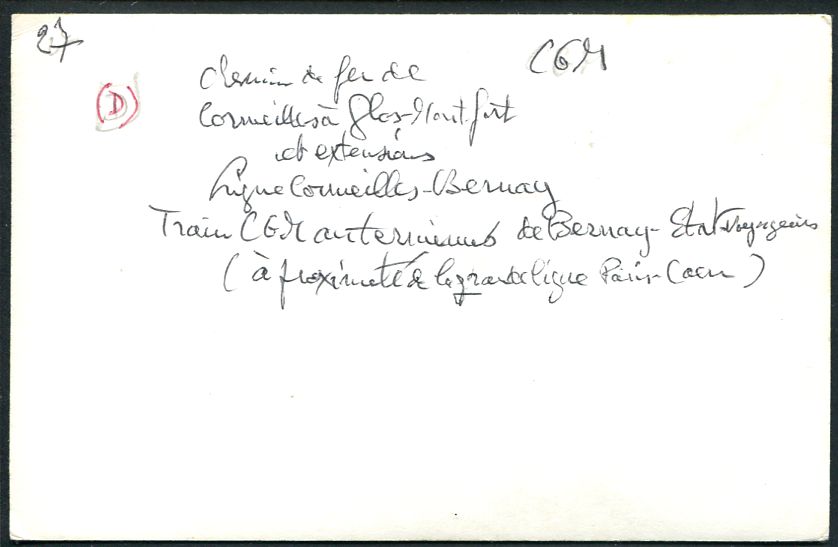 27
CGM
(D)
Chemin de fer de
Cormeilles à Glos-Montfort
et extensions
Ligne Cormeilles-Bernay
Train CGM au terminus de Bernay-Etat voyageurs
(à proximité de la grande ligne Paris-Caen)